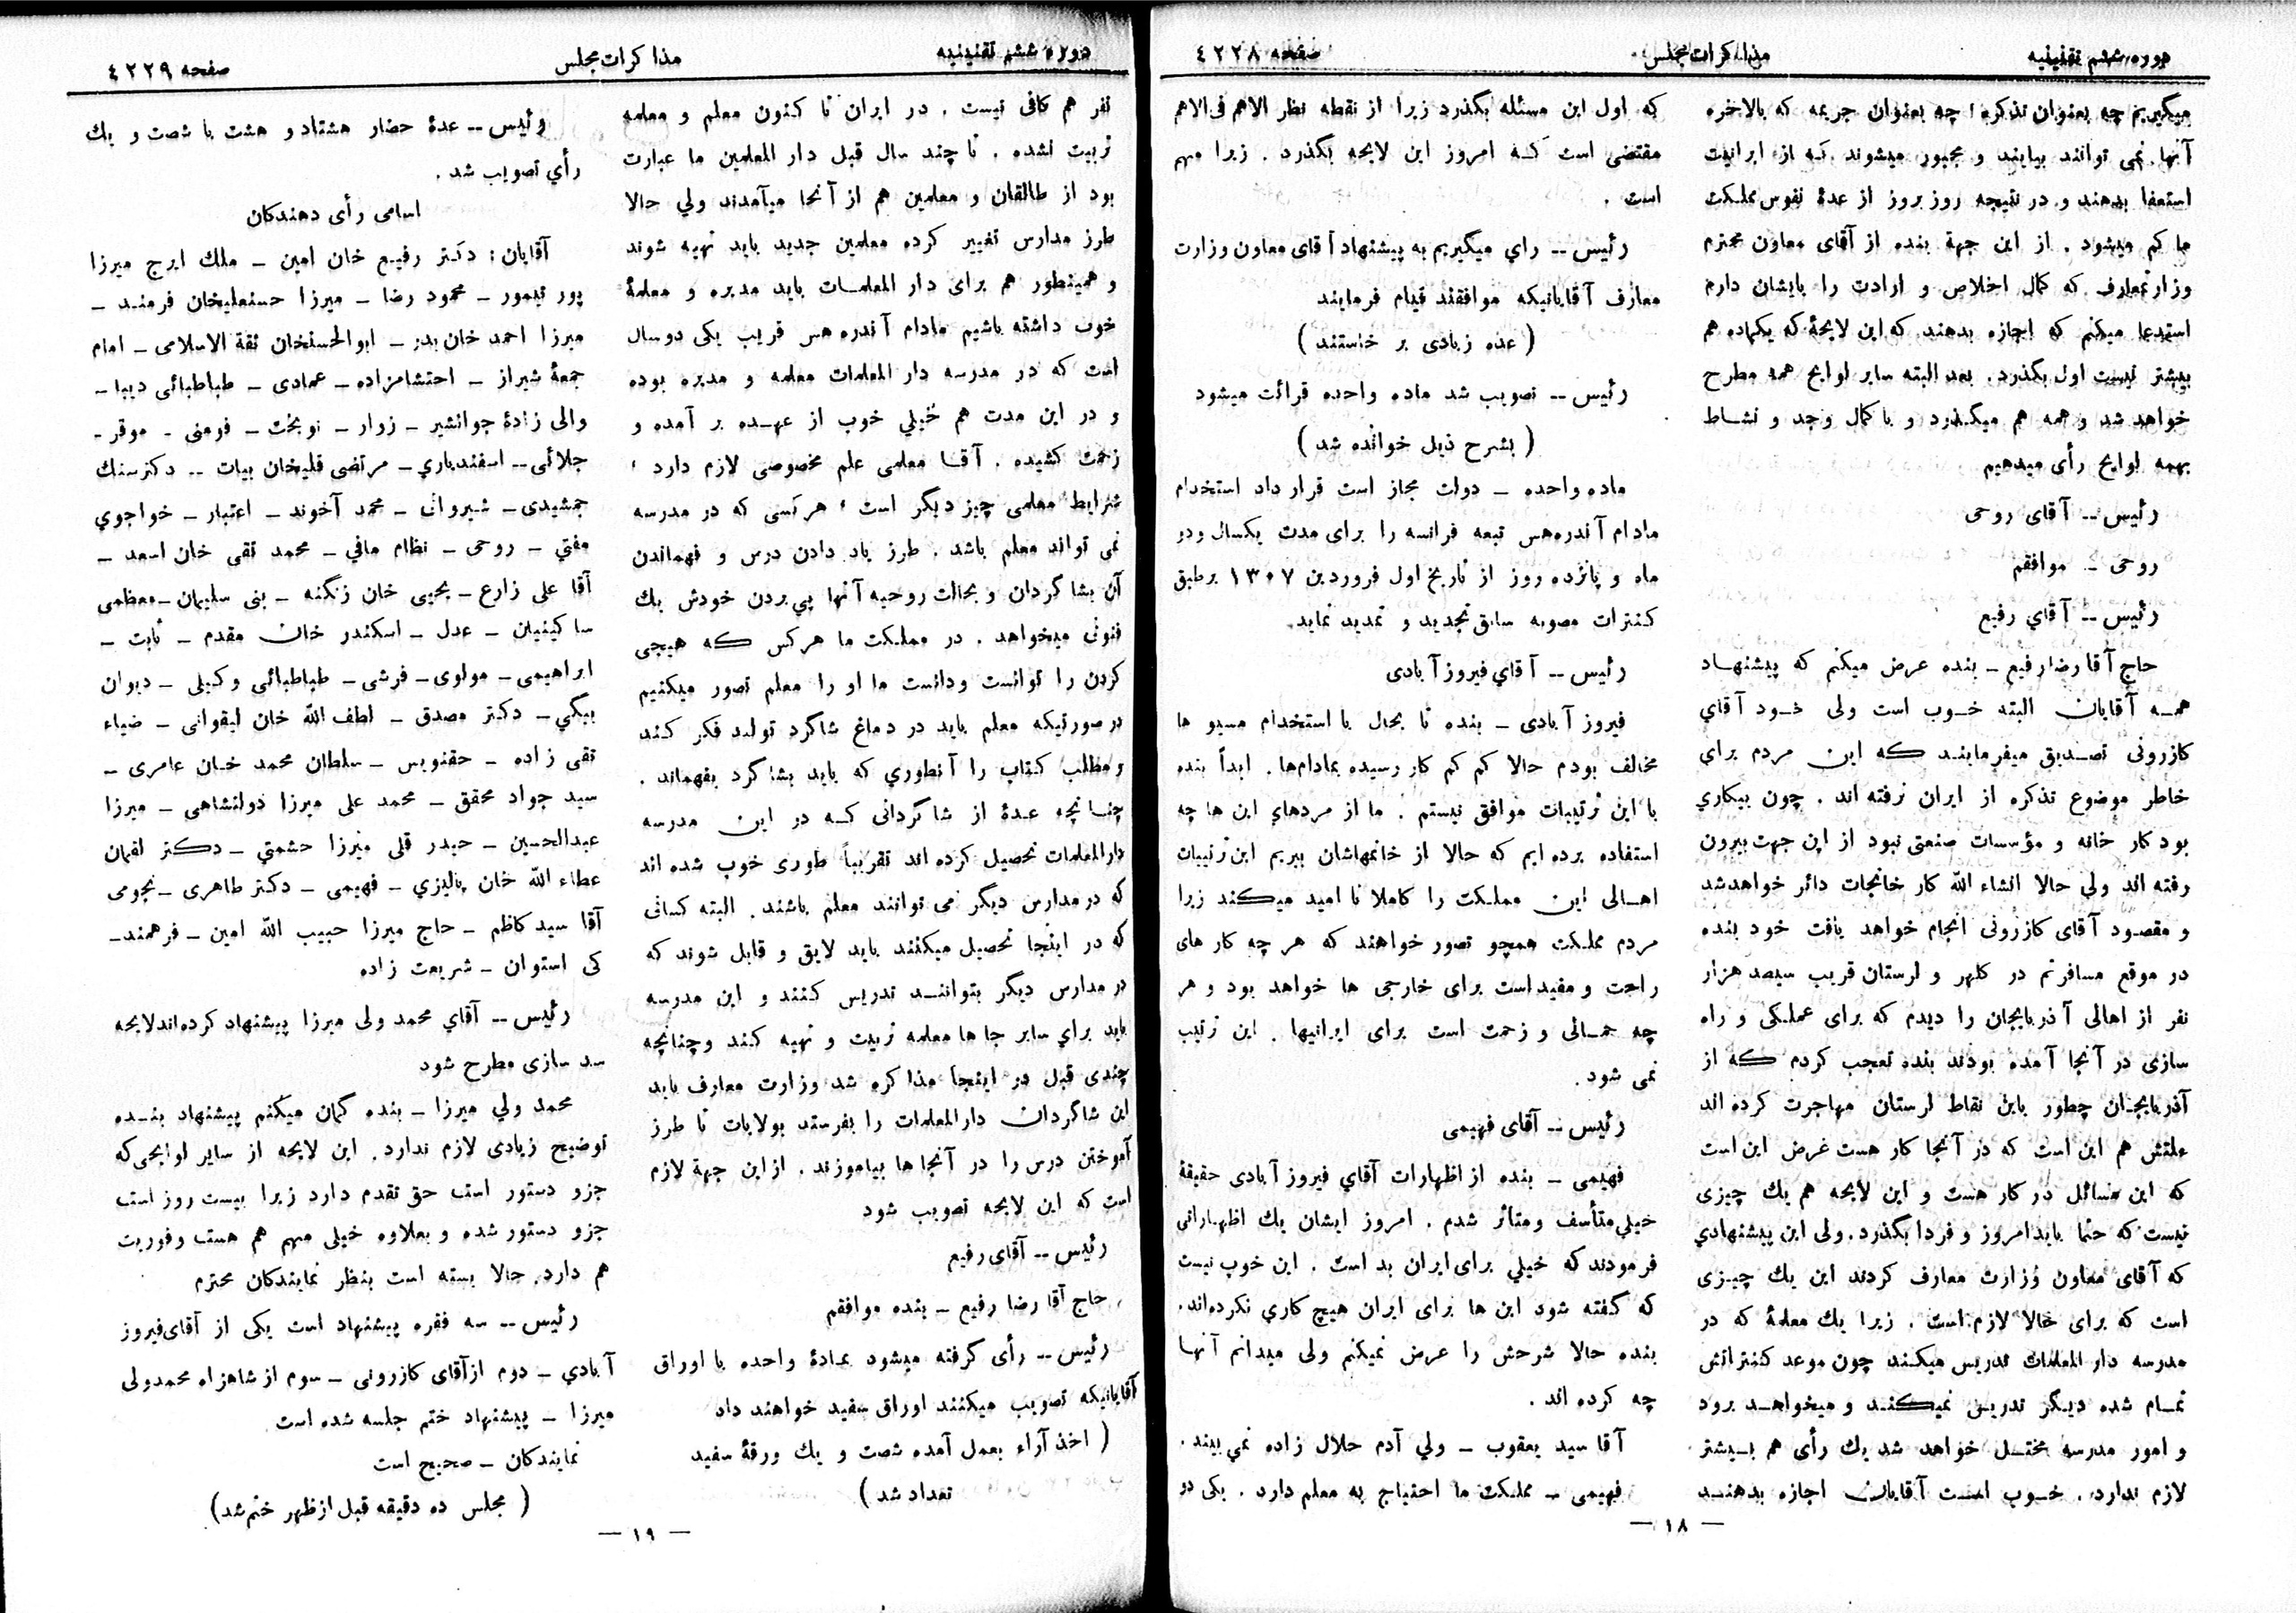 دوره ششم تقنینیه
مذاکرات مجلس
صفحه ٤٢٢٨
میگیریم چه بعنوان تذکره ؛ چه بعنوان جریمه که بالاخره
آنها نمی توانند بیایند و مجبور میشوند که از ایرانیت
استعفا بدهند و در نتیجه روز بروز از عدهٔ نفوس مملکت
ما کم میشود . از این جهة بنده از آقای معاون محترم
وزارتمعارف که کمال اخلاص و ارادت را بایشان دارم
استدعا میکنم که اجازه بدهند که این لایحهٔ که یکماده هم
بیشتر نیست اول بگذرد . بعد البته سایر لوایح همه مطرح
خواهد شد و همه هم میگذرد و با کمال وجد و نشاط
بهمه لوایح رأی میدهیم
رئیس -- آقای روحی
روحی - موافقم
رئیس -- آقاي رفیع
حاج آقا رضا رفیع - بنده عرض میکنم که پیشنهاد
همه آقایان البته خوب است ولی خود آقاي
کازرونی تصدیق میفرمایند که این مردم برای
خاطر موضوع تذکره از ایران نرفته اند . چون بیکاري
بود کار خانه و مؤسسات صنعتی نبود از این جهت بیرون
رفته اند ولی حالا انشاء الله کار خانجات دائر خواهدشد
و مقصود آقای کازرونی انجام خواهد یافت خود بنده
در موقع مسافرتم در کلهر و لرستان قریب سیصد هزار
نفر از اهالی آذربایجان را دیدم که برای عملگی و راه
سازی در آنجا آمده بودند بنده تعجب کردم که از
آذربایجان چطور باین نقاط لرستان مهاجرت کرده اند
علتش هم این است که در آنجا کار هست غرض این است
که این مسائل در کار هست و این لایحه هم یك چیزی
نیست که حتما باید امروز و فردا بگذرد . ولی این پیشنهادي
که آقای معاون وزارت معارف کردند این یك چیزی
است که برای حالا لازم است . زیرا یك معلمهٔ که در
مدرسه دار المعلمات تدریس میکند چون موعد کنتراتش
تمام شده دیگر تدریس نمیکند و میخواهد برود
و امور مدرسه مختل خواهد شد یك رأی هم بیشتر
لازم ندارد . خوب است آقایان اجازه بدهند
که اول این مسئله بگذرد زیرا از نقطه نظر الاهم فی الاهم
مقتضی است که امروز این لایحه بگذرد . زیرا مهم
است .
رئیس -- راي میگیریم به پیشنهاد آقای معاون وزارت
معارف آقایانیکه موافقند قیام فرمایند
( عده زیادی بر خاستند )
رئیس -- تصویب شد ماده واحده قرائت میشود
( بشرح ذیل خوانده شد )
ماده واحده - دولت مجاز است قرار داد استخدام
مادام آندرههس تبعه فرانسه را برای مدت یکسال و دو
ماه و پانزده روز از تاریخ اول فروردین ١٣٠٧ برطبق
کنترات مصوبه سابق تجدید و تمدید نماید.
رئیس -- آقاي فیروز آبادی
فیروز آبادی - بنده تا بحال با استخدام مسیو ها
مخالف بودم حالا کم کم کار رسیده بمادام‌ها . ابداً بنده
با این ترتیبات موافق نیستم . ما از مردهاي این ها چه
استفاده برده ایم که حالا از خانمهاشان ببریم این ترتیبات
اهالی این مملکت را کاملا نا امید میکند زیرا
مردم مملکت همچو تصور خواهند که هر چه کار های
راحت و مفید است برای خارجی ها خواهد بود و هر
چه حمالی و زحمت است برای ایرانیها . این ترتیب
نمی شود .
رئیس -- آقای فهیمی
فهیمی - بنده از اظهارات آقاي فیروز آبادی حقیقهٔ
خیلی متأسف و متاثر شدم . امروز ایشان یك اظهاراتی
فرمودند که خیلي برای ایران بد است . این خوب نیست
که گفته شود این ها برای ایران هیچ کاري نکرده‌اند.
بنده حالا شرحش را عرض نمیکنم ولی میدانم آنها
چه کرده اند .
آقا سید یعقوب - ولي آدم حلال زاده نمی بیند .
فهیمی - مملکت ما احتیاج به معلم دارد . یکی دو
— ١٨ —
دوره ششم تقنینیه
مذاکرات مجلس
صفحه ٤٢٢٩
نفر هم کافی نیست . در ایران تا کنون معلم و معلمه
تربیت نشده . تا چند سال قبل دار المعلمین ما عبارت
بود از طالقان و معلمین هم از آنجا میآمدند ولي حالا
طرز مدارس تغییر کرده معلمین جدید باید تهیه شوند
و همینطور هم برای دار المعلمات باید مدیره و معلمهٔ
خوب داشته باشیم مادام آندره هس قریب یکی دو سال
است که در مدرسه دار المعلمات معلمه و مدیره بوده
و در این مدت هم خیلي خوب از عهده بر آمده و
زحمت کشیده . آقا معلمی علم مخصوصی لازم دارد ؛
شرایط معلمی چیز دیگر است ؛ هر کسی که در مدرسه
نمی تواند معلم باشد . طرز یاد دادن درس و فهماندن
آن بشاگردان و بحالت روحیه آنها پی بردن خودش یك
فنونی میخواهد . در مملکت ما هر کس که هیجی
کردن را توانست و دانست ما او را معلم تصور میکنیم
در صورتیکه معلم باید در دماغ شاگرد تولید فکر کند
و مطلب کتاب را آنطوري که باید بشاگرد بفهماند .
چنانچه عدهٔ از شاگردانی که در این مدرسه
دارالمعلمات تحصیل کرده اند تقریباً طوری خوب شده اند
که در مدارس دیگر می توانند معلم باشند . البته کسانی
که در اینجا تحصیل میکنند باید لایق و قابل شوند که
در مدارس دیگر بتوانند تدریس کنند و این مدرسه
باید براي سایر جا ها معلمه تربیت و تهیه کند و چنانچه
چندی قبل در اینجا مذاکره شد وزارت معارف باید
این شاگردان دارالمعلمات را بفرستد بولایات تا طرز
آموختن درس را در آنجا ها بیاموزند . از این جهة لازم
است که این لایحه تصویب شود
رئیس -- آقای رفیع
حاج آقا رضا رفیع - بنده موافقم
رئیس -- رأی گرفته میشود بمادهٔ واحده با اوراق
آقایانیکه تصویب میکنند اوراق سفید خواهند داد
( اخذ آراء بعمل آمده شصت و یك ورقهٔ سفید
تعداد شد )
رئیس -- عدهٔ حضار هشتاد و هشت با شصت و یك
رأي تصویب شد .
اسامی رأی دهندکان
آقایان : دکتر رفیع خان امین - ملك ایرج میرزا
پور تیمور - محمود رضا - میرزا حسنعلیخان فرمند -
میرزا احمد خان بدر - ابوالحسنخان ثقة الاسلامی - امام
جمعهٔ شیراز - احتشامزاده - عمادی - طباطبائی دیبا -
والی زادهٔ جوانشیر - زوار - نوبخت - فرمنی - موقر -
جلائی -- اسفندیاري - مرتضی قلیخان بیات -- دکترسنك
جمشیدی - شیروانی - محمد آخوند - اعتبار - خواجوي
مفتي - روحی - نظام مافي - محمد تقی خان اسعد -
آقا علی زارع - یحیی خان زنگنه - بنی سلیمان - معظمی
ساکینیان - عدل - اسکندر خان مقدم - ثابت -
ابراهیمی - مولوی - فرشی - طباطبائی وکیلی - دیوان
بیگي - دکتر مصدق - لطف الله خان لیقوانی - ضیاء
تقی زاده - حقنویس - سلطان محمد خان عامری -
سید جواد محقق - محمد علی میرزا دولتشاهی - میرزا
عبدالحسین - حیدر قلی میرزا حشمتي - دکتر لقمان
عطاء الله خان پالیزي - فهیمی - دکتر طاهری - نجومی
آقا سید کاظم - حاج میرزا حبیب الله امین - فرهمند -
کی استوان - شریعت زاده
رئیس -- آقاي محمد ولی میرزا پیشنهاد کرده‌اند لایحه
سد سازی مطرح شود
محمد ولي میرزا - بنده گمان میکنم پیشنهاد بنده
توضیح زیادی لازم ندارد . این لایحه از سایر لوایحی که
جزو دستور است حق تقدم دارد زیرا بیست روز است
جزو دستور شده و بعلاوه خیلی مهم هم هست و فوریت
هم دارد . حالا بسته است بنظر نمایندکان محترم
رئیس -- سه فقره پیشنهاد است یکی از آقای فیروز
آبادي - دوم از آقای کازرونی - سوم از شاهزاده محمدولی
میرزا - پیشنهاد ختم جلسه شده است
نمایندکان - صحیح است
( مجلس ده دقیقه قبل از ظهر ختم شد )
— ١٩ —